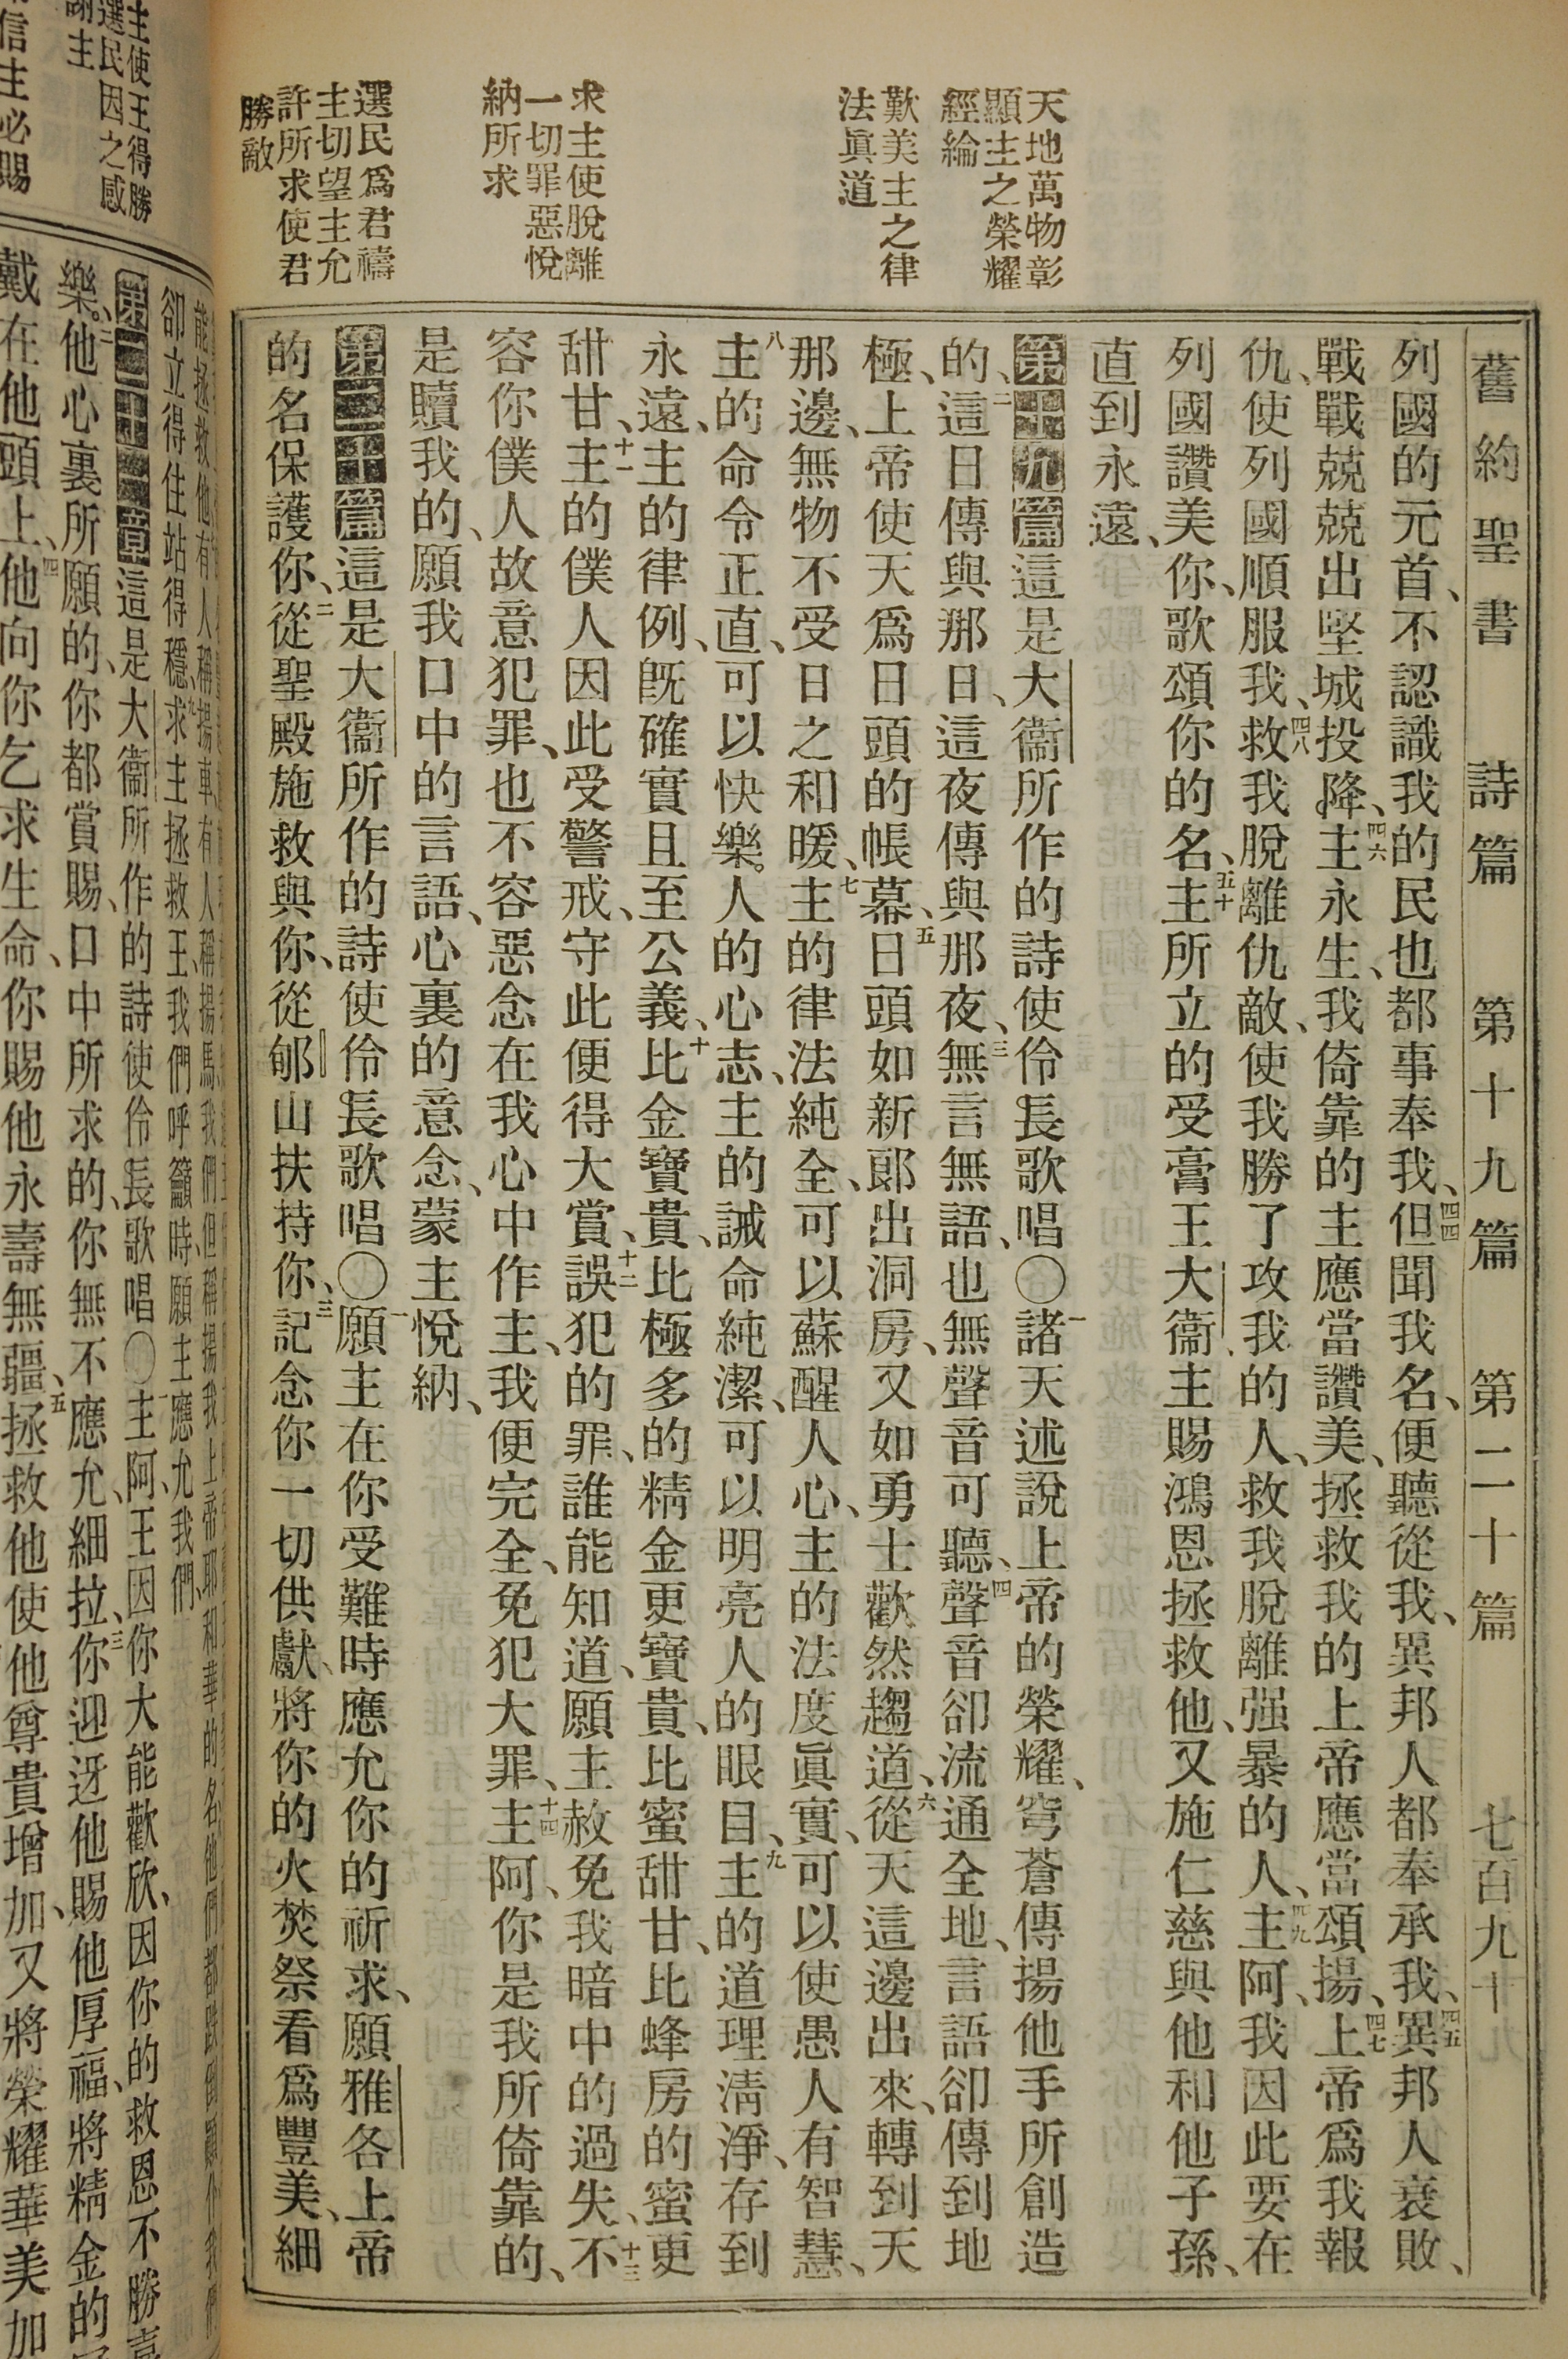 舊約聖書 詩篇 第十九篇 第二十篇 七百九十九
天地萬物彰
顯主之榮耀
經綸
歎美主之律
法眞道
求主使脫離
一切罪惡悅
納所求
選民爲君禱
主切望主允
許所求使君
勝敵
列國的元首、不認識我的民也都事奉我、四四但聞我名、便聽從我、異邦人都奉承我、四五異邦人衰敗、
戰戰兢兢出堅城投降、四六主永生、我倚靠的主應當讚美、拯救我的上帝應當頌揚、四七上帝爲我報
仇、使列國順服我、四八救我脫離仇敵、使我勝了攻我的人、救我脫離强暴的人、四九主阿、我因此要在
列國讚美你、歌頌你的名、五十主所立的受膏王大衞、主賜鴻恩拯救他、又施仁慈與他和他子孫、
直到永遠、
第十九篇這是大衞所作的詩使伶長歌唱〇一諸天述說上帝的榮耀、穹蒼傳揚他手所創造
的、二這日傳與那日、這夜傳與那夜、三無言無語、也無聲音可聽、四聲音卻流通全地、言語卻傳到地
極、上帝使天爲日頭的帳幕、五日頭如新郞出洞房、又如勇士歡然趨道、六從天這邊出來、轉到天
那邊、無物不受日之和暖、七主的律法純全、可以蘇醒人心、主的法度眞實、可以使愚人有智慧、
八主的命令正直、可以快樂人的心志、主的誡命純潔、可以明亮人的眼目、九主的道理淸淨、存到
永遠、主的律例、旣確實且至公義、十比金寶貴、比極多的精金更寶貴、比蜜甜甘、比蜂房的蜜更
甜甘、十一主的僕人因此受警戒、守此便得大賞、十二誤犯的罪、誰能知道、願主赦免我暗中的過失、十三不
容你僕人故意犯罪、也不容惡念在我心中作主、我便完全、免犯大罪、十四主阿、你是我所倚靠的、
是贖我的、願我口中的言語、心裏的意念、蒙主悅納、
第二十篇這是大衞所作的詩使伶長歌唱〇一願主在你受難時應允你的祈求、願雅各上帝
的名保護你、二從聖殿施救與你、從郇山扶持你、三記念你一切供獻、將你的火焚祭看爲豐美、細
主使王得勝
選民因之感
謝主
信主必賜
卻立得住站得穩、九求主拯救王、我們呼籲時、願主應允我們、
第二十一章這是大衞所作的詩使伶長歌唱〇一主阿、王因你大能歡欣、因你的救恩不勝喜
樂。二他心裏所願的、你都賞賜、口中所求的、你無不應允、細拉、三你迎迓他賜他厚福、將精金的
戴在他頭上、四他向你乞求生命、你賜他永壽無疆、五拯救他使他尊貴增加、又將榮耀華美加